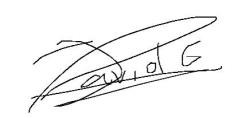 David G